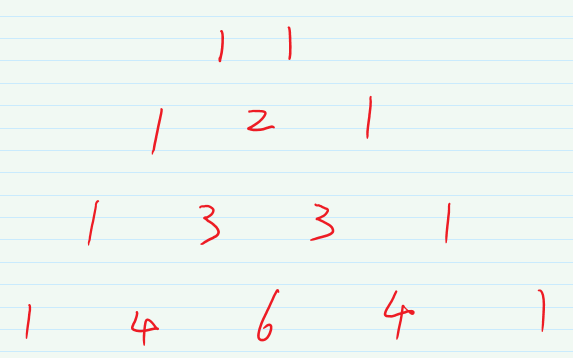 1 1
1 2 1
1 3 3 1
1 4 6 4 1